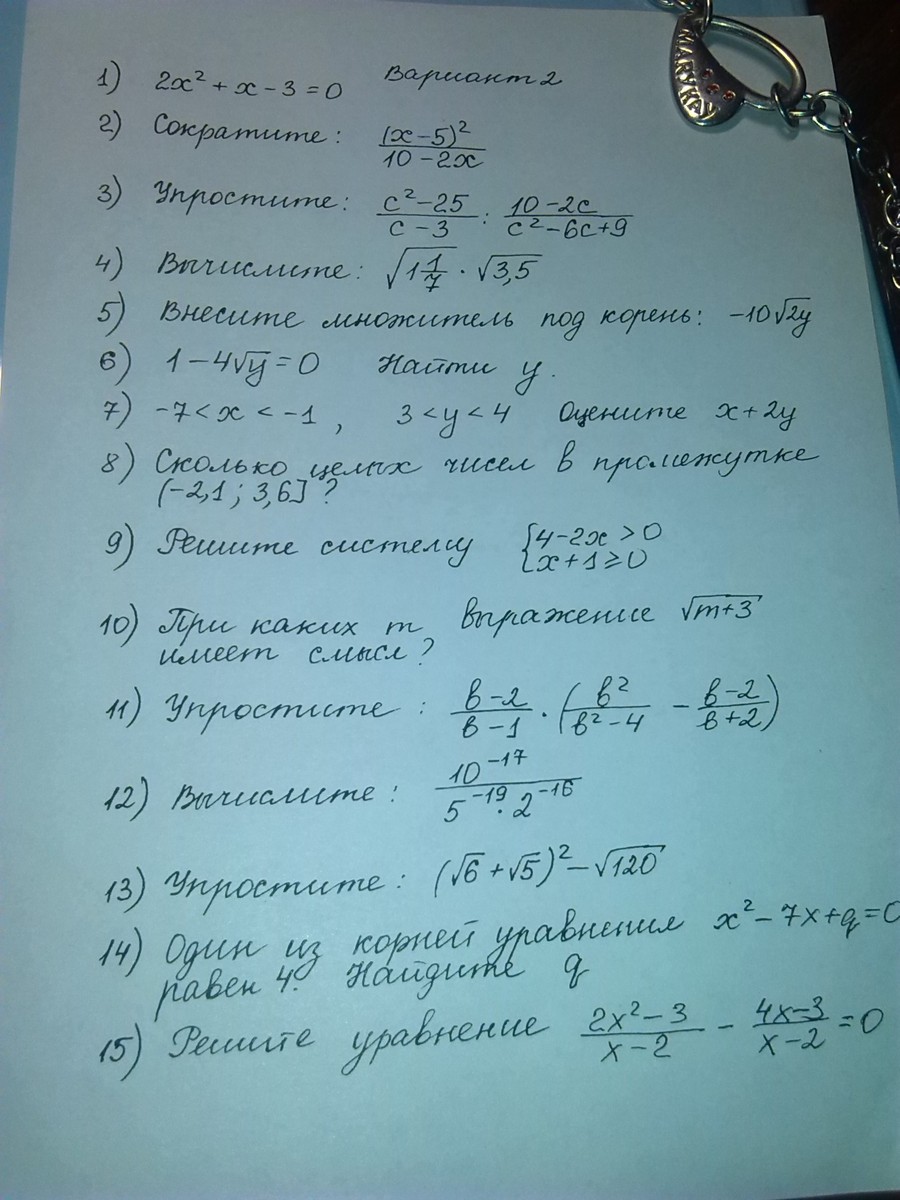 1) 2x² + x - 3 = 0 Вариант 2
2) Сократите: (x-5)² / 10-2x
3) Упростите: c²-25 / c-3 : 10-2c / c²-6c+9
4) Вычислите: √1 1/7 · √3,5
5) Внесите множитель под корень: -10√2y
6) 1-4√y = 0 Найти y.
7) -7<x<-1, 3<y<4 Оцените x+2y
8) Сколько целых чисел в промежутке
(-2,1; 3,6]?
9) Решите систему {4-2x>0
x+1≥0
10) При каких m выражение √m+3
имеет смысл?
11) Упростите: в-2 / в-1 · (в² / в²-4 - в-2 / в+2)
12) Вычислите: 10⁻¹⁷ / 5⁻¹⁹ · 2⁻¹⁶
13) Упростите: (√6+√5)² - √120
14) Один из корней уравнения x²-7x+q=0
равен 4. Найдите q
15) Решите уравнение 2x²-3 / x-2 - 4x-3 / x-2 = 0
МАRУКА